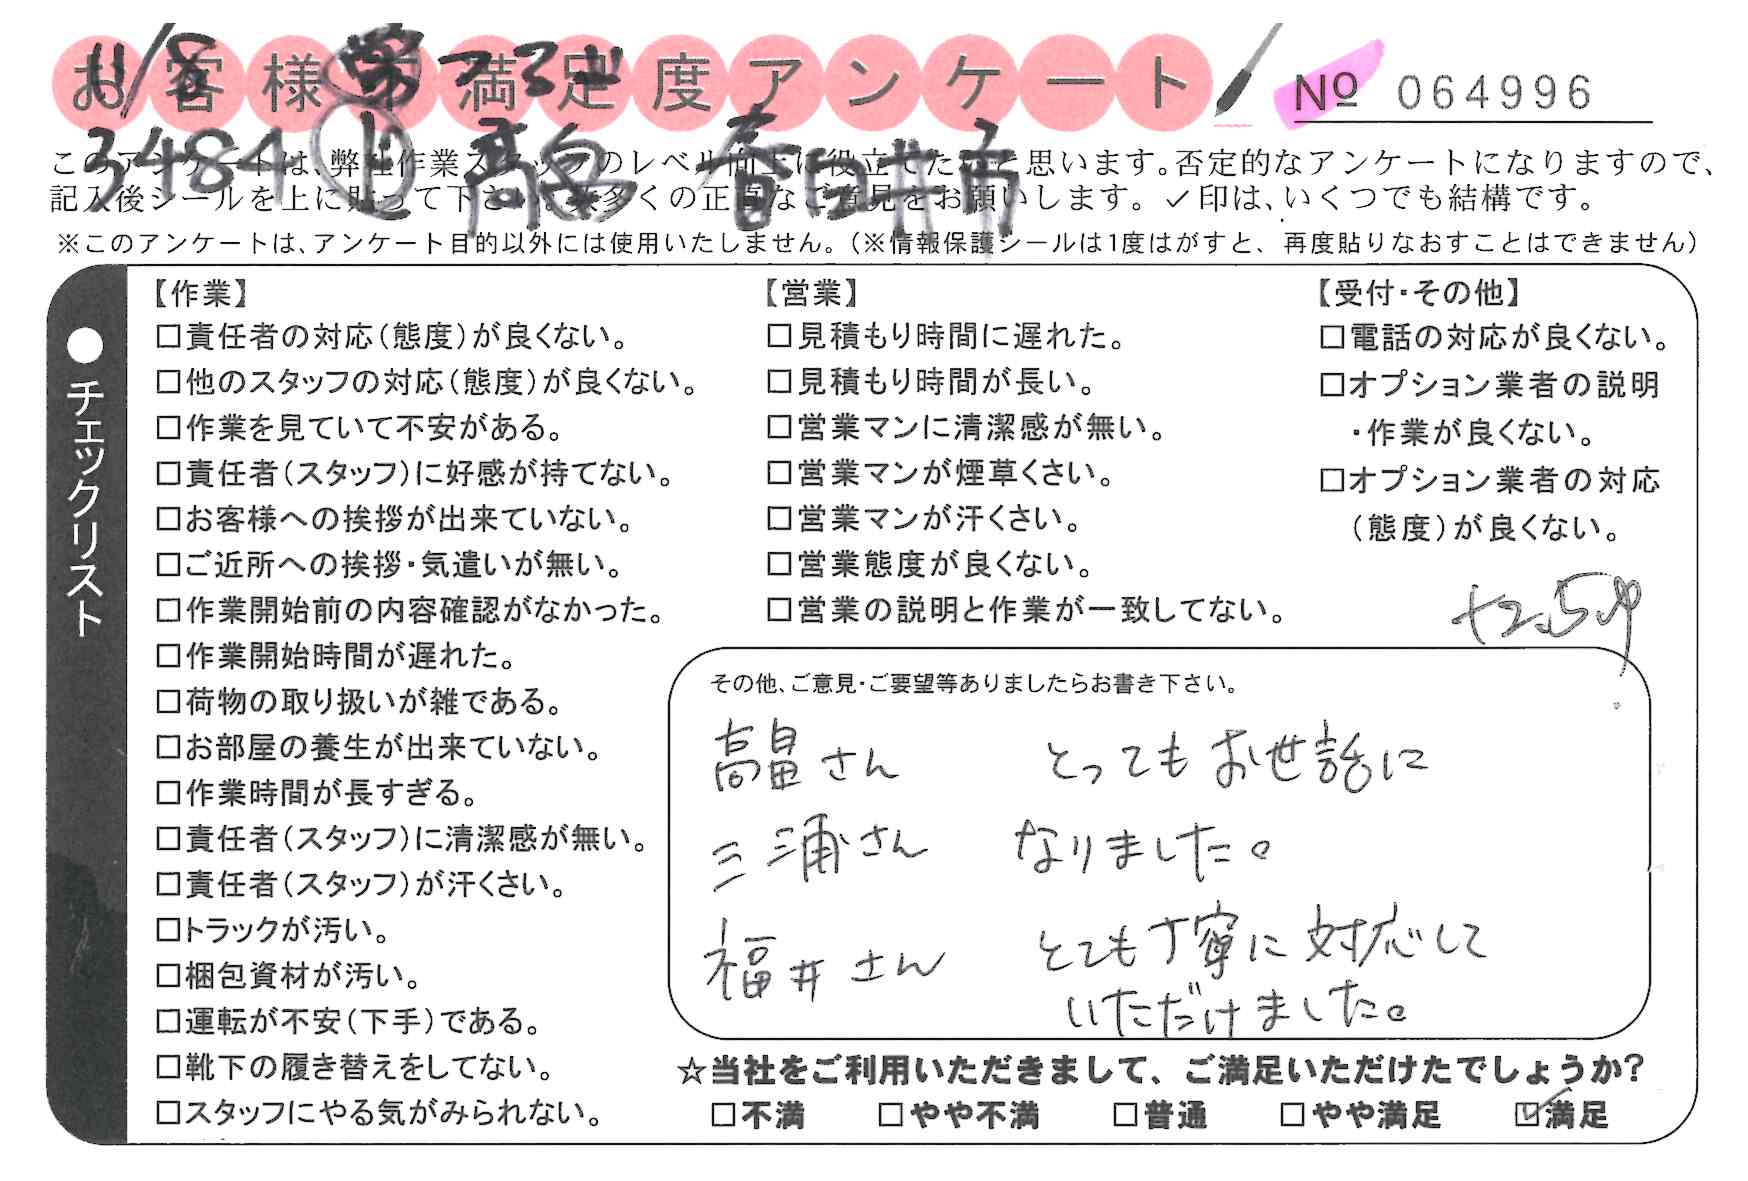 お客様満足度アンケート
№ 064996
11/8
3484 高畠 春日井市
このアンケートは、弊社作業スタッフのレベル向上に役立てたいと思います。否定的なアンケートになりますので、
記入後シールを上に貼って下さい。数多くの正直なご意見をお願いします。✓印は、いくつでも結構です。
※このアンケートは、アンケート目的以外には使用いたしません。（※情報保護シールは1度はがすと、再度貼りなおすことはできません）
●チェックリスト
【作業】
□責任者の対応（態度）が良くない。
□他のスタッフの対応（態度）が良くない。
□作業を見ていて不安がある。
□責任者（スタッフ）に好感が持てない。
□お客様への挨拶が出来ていない。
□ご近所への挨拶・気遣いが無い。
□作業開始前の内容確認がなかった。
□作業開始時間が遅れた。
□荷物の取り扱いが雑である。
□お部屋の養生が出来ていない。
□作業時間が長すぎる。
□責任者（スタッフ）に清潔感が無い。
□責任者（スタッフ）が汗くさい。
□トラックが汚い。
□梱包資材が汚い。
□運転が不安（下手）である。
□靴下の履き替えをしてない。
□スタッフにやる気がみられない。
【営業】
□見積もり時間に遅れた。
□見積もり時間が長い。
□営業マンに清潔感が無い。
□営業マンが煙草くさい。
□営業マンが汗くさい。
□営業態度が良くない。
□営業の説明と作業が一致してない。
【受付・その他】
□電話の対応が良くない。
□オプション業者の説明
・作業が良くない。
□オプション業者の対応
（態度）が良くない。
+2.5P
その他、ご意見・ご要望等ありましたらお書き下さい。
高畠さん とってもお世話に
三浦さん なりました。
福井さん とても丁寧に対応して
いただけました。
☆当社をご利用いただきまして、ご満足いただけたでしょうか?
□不満 □やや不満 □普通 □やや満足 ☑満足